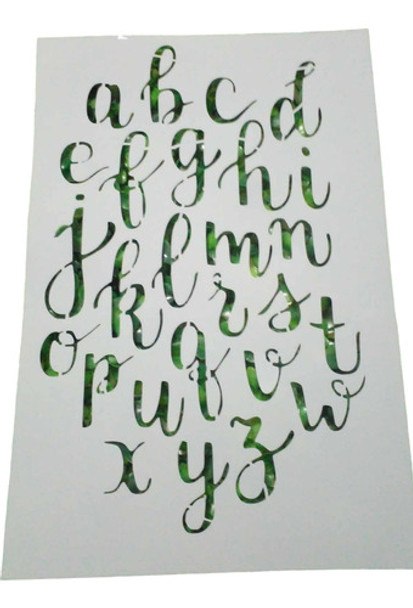 a b c d
e f g h i
j k l m n
o p q r s t
u v w
x y z